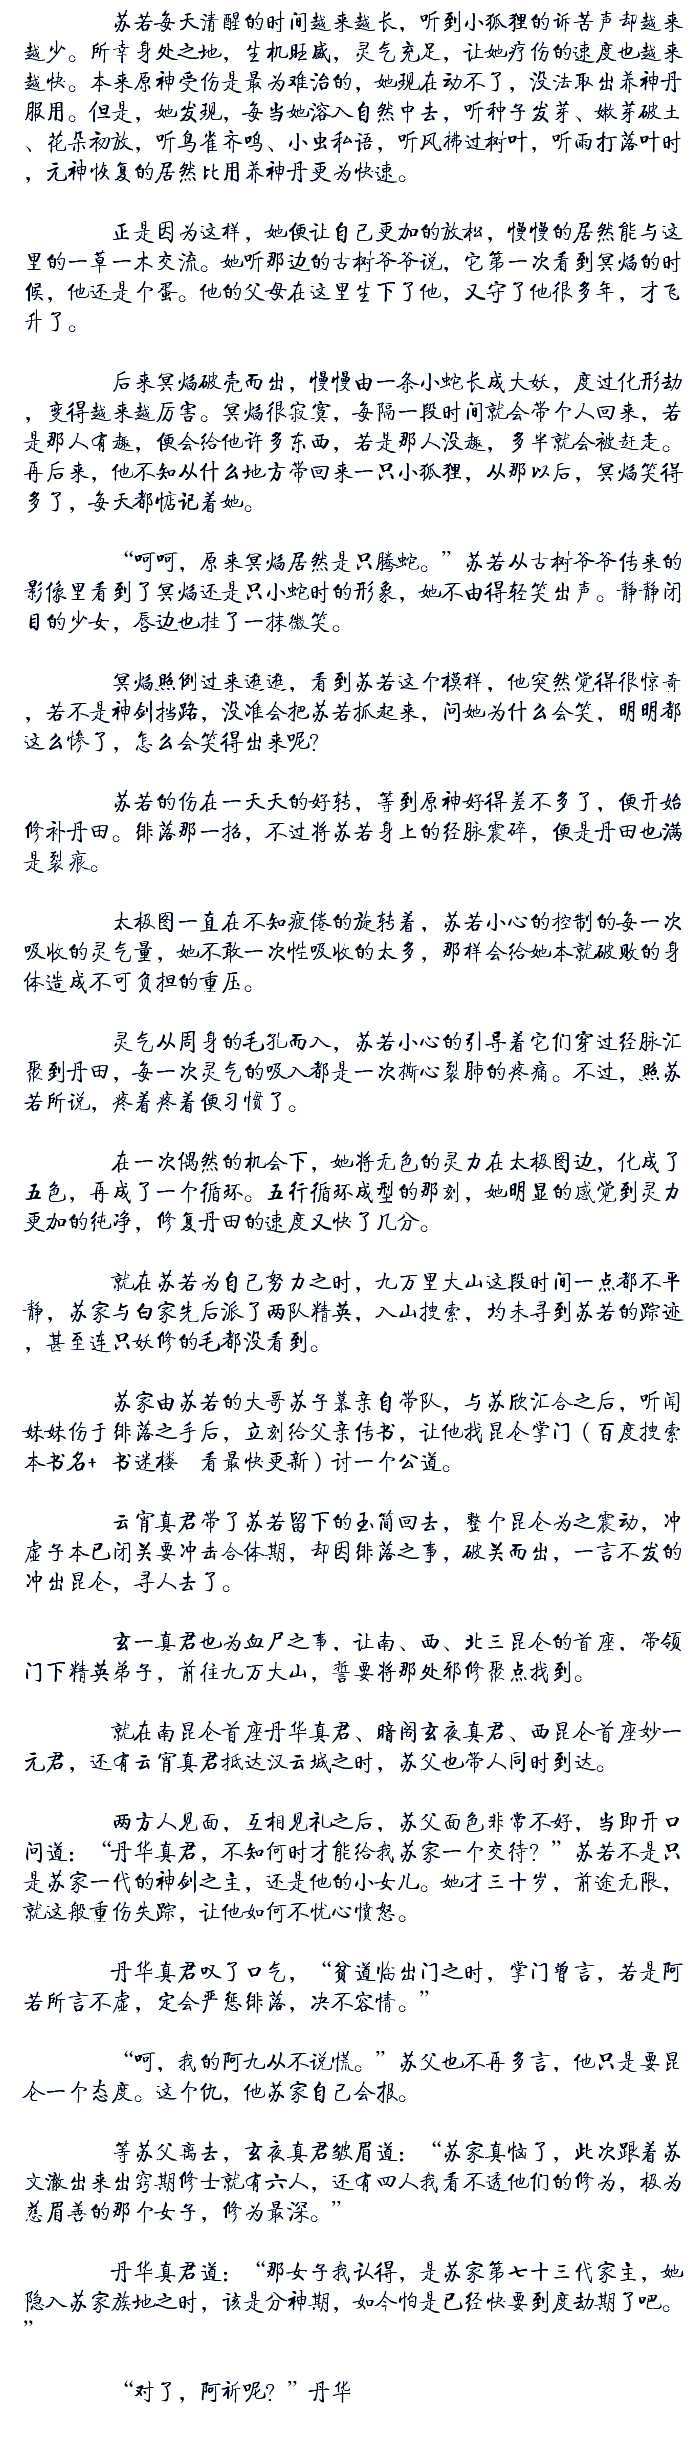 苏若每天清醒的时间越来越长，听到小狐狸的诉苦声却越来
越少。所幸身处之地，生机旺盛，灵气充足，让她疗伤的速度也越来
越快。本来原神受伤是最为难治的，她现在动不了，没法取出养神丹
服用。但是，她发现，每当她溶入自然中去，听种子发芽、嫩芽破土
、花朵初放，听鸟雀齐鸣、小虫私语，听风拂过树叶，听雨打落叶时
，元神恢复的居然比用养神丹更为快速。
正是因为这样，她便让自己更加的放松，慢慢的居然能与这
里的一草一木交流。她听那边的古树爷爷说，它第一次看到冥焰的时
候，他还是个蛋。他的父母在这里生下了他，又守了他很多年，才飞
升了。
后来冥焰破壳而出，慢慢由一条小蛇长成大妖，度过化形劫
，变得越来越厉害。冥焰很寂寞，每隔一段时间就会带个人回来，若
是那人有趣，便会给他许多东西，若是那人没趣，多半就会被赶走。
再后来，他不知从什么地方带回来一只小狐狸，从那以后，冥焰笑得
多了，每天都惦记着她。
“呵呵，原来冥焰居然是只腾蛇。”苏若从古树爷爷传来的
影像里看到了冥焰还是只小蛇时的形象，她不由得轻笑出声。静静闭
目的少女，唇边也挂了一抹微笑。
冥焰照例过来逛逛，看到苏若这个模样，他突然觉得很惊奇
，若不是神剑挡路，没准会把苏若抓起来，问她为什么会笑，明明都
这么惨了，怎么会笑得出来呢？
苏若的伤在一天天的好转，等到原神好得差不多了，便开始
修补丹田。绯落那一招，不过将苏若身上的经脉震碎，便是丹田也满
是裂痕。
太极图一直在不知疲倦的旋转着，苏若小心的控制的每一次
吸收的灵气量，她不敢一次性吸收的太多，那样会给她本就破败的身
体造成不可负担的重压。
灵气从周身的毛孔而入，苏若小心的引导着它们穿过经脉汇
聚到丹田，每一次灵气的吸入都是一次撕心裂肺的疼痛。不过，照苏
若所说，疼着疼着便习惯了。
在一次偶然的机会下，她将无色的灵力在太极图边，化成了
五色，再成了一个循环。五行循环成型的那刻，她明显的感觉到灵力
更加的纯净，修复丹田的速度又快了几分。
就在苏若为自己努力之时，九万里大山这段时间一点都不平
静，苏家与白家先后派了两队精英，入山搜索，均未寻到苏若的踪迹
，甚至连只妖修的毛都没看到。
苏家由苏若的大哥苏子慕亲自带队，与苏欣汇合之后，听闻
妹妹伤于绯落之手后，立刻给父亲传书，让他找昆仑掌门（百度搜索
本书名+ 书迷楼　看最快更新）讨一个公道。
云宵真君带了苏若留下的玉简回去，整个昆仑为之震动，冲
虚子本已闭关要冲击合体期，却因绯落之事，破关而出，一言不发的
冲出昆仑，寻人去了。
玄一真君也为血尸之事，让南、西、北三昆仑的首座，带领
门下精英弟子，前往九万大山，誓要将那处邪修聚点找到。
就在南昆仑首座丹华真君、暗阁玄夜真君、西昆仑首座妙一
元君，还有云宵真君抵达汉云城之时，苏父也带人同时到达。
两方人见面，互相见礼之后，苏父面色非常不好，当即开口
问道：“丹华真君，不知何时才能给我苏家一个交待？”苏若不是只
是苏家一代的神剑之主，还是他的小女儿。她才三十岁，前途无限，
就这般重伤失踪，让他如何不忧心愤怒。
丹华真君叹了口气，“贫道临出门之时，掌门曾言，若是阿
若所言不虚，定会严惩绯落，决不容情。”
“呵，我的阿九从不说慌。”苏父也不再多言，他只是要昆
仑一个态度。这个仇，他苏家自己会报。
等苏父离去，玄夜真君皱眉道：“苏家真恼了，此次跟着苏
文澈出来出窍期修士就有六人，还有四人我看不透他们的修为，极为
慈眉善的那个女子，修为最深。”
丹华真君道：“那女子我认得，是苏家第七十三代家主，她
隐入苏家族地之时，该是分神期，如今怕是已经快要到度劫期了吧。
”
“对了，阿祈呢？”丹华